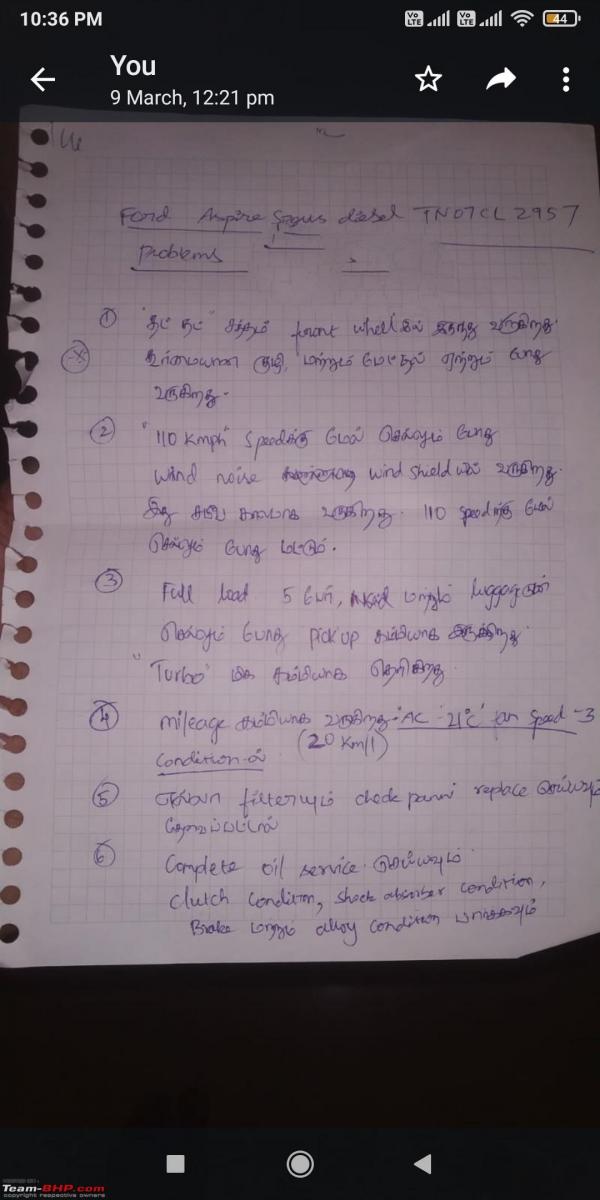 10:36 PM
Vo LTE
Vo LTE
44
You
9 March, 12:21 pm
Ford Aspire diesel TN07CL2957
Problems
① "தட் தட்" சத்தம் front wheelலில் இருந்து வருகிறது.
குழி, மற்றும் மேட்டில் ஏற்றும் போது
வருகிறது.
② "110 kmph" speedக்கு மேல் செல்லும் போது
wind noise wind shield யில் வருகிறது.
இது வருகிறது. 110 speedக்கு மேல்
செல்லும் போது மட்டும்.
③ Full load 5 பேர், மற்றும் luggageடன்
செல்லும் போது pick up கம்மியாக இருக்கிறது.
"Turbo" மிக கம்மியாக தெரிகிறது.
④ mileage கம்மியாக வருகிறது. "AC 21°C" fan speed -3
condition-ல் (20 km/l)
⑤ எல்லா filterயும் check replace செய்யவும்
தேவைப்பட்டால்
⑥ Complete oil service செய்யவும்.
Clutch condition, shock absorber condition,
Brake மற்றும் alloy condition பார்க்கவும்
Team-BHP.com
copyright respective owners